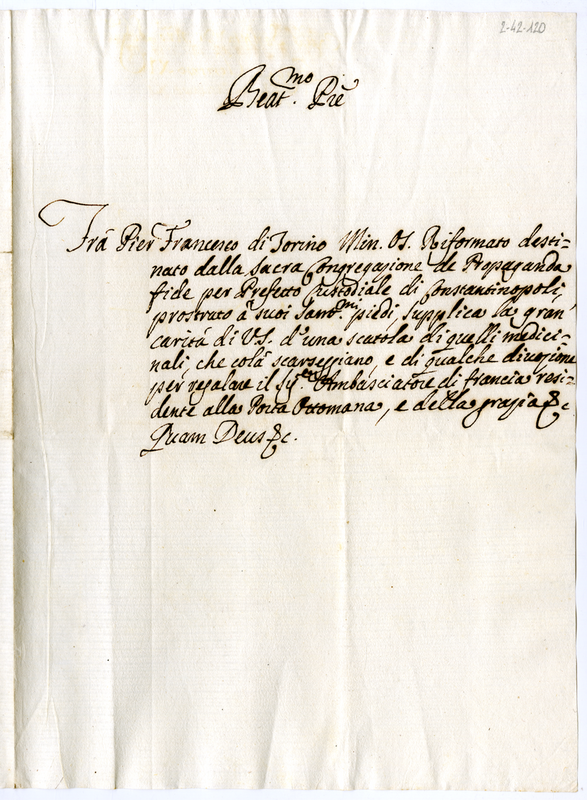 2-42-120
Beat.mo Prê
Frà Pier Francesco di Torino Min. Os. Riformato desti-
nato dalla Sacra Congregazione de Propaganda
fide per Prefetto Custodiale di Constantinopoli,
prostrato à suoi Sant.mi piedi, supplica la gran
carità di V.S. d'una scatola di quelli medici-
nali, che colà scarseggiano, e di qualche
per regalare il Ambasciatore di francia resi-
dente alla Porta Ottomana, e della grazia &c
Quam Deus &c.